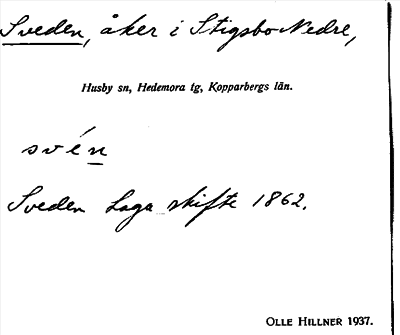 Sveden, åker i Stigsbo Nedre,
Husby sn, Hedemora tg, Kopparbergs län.
svén
Sveden Laga skifte 1862.
OLLE HILLNER 1937.